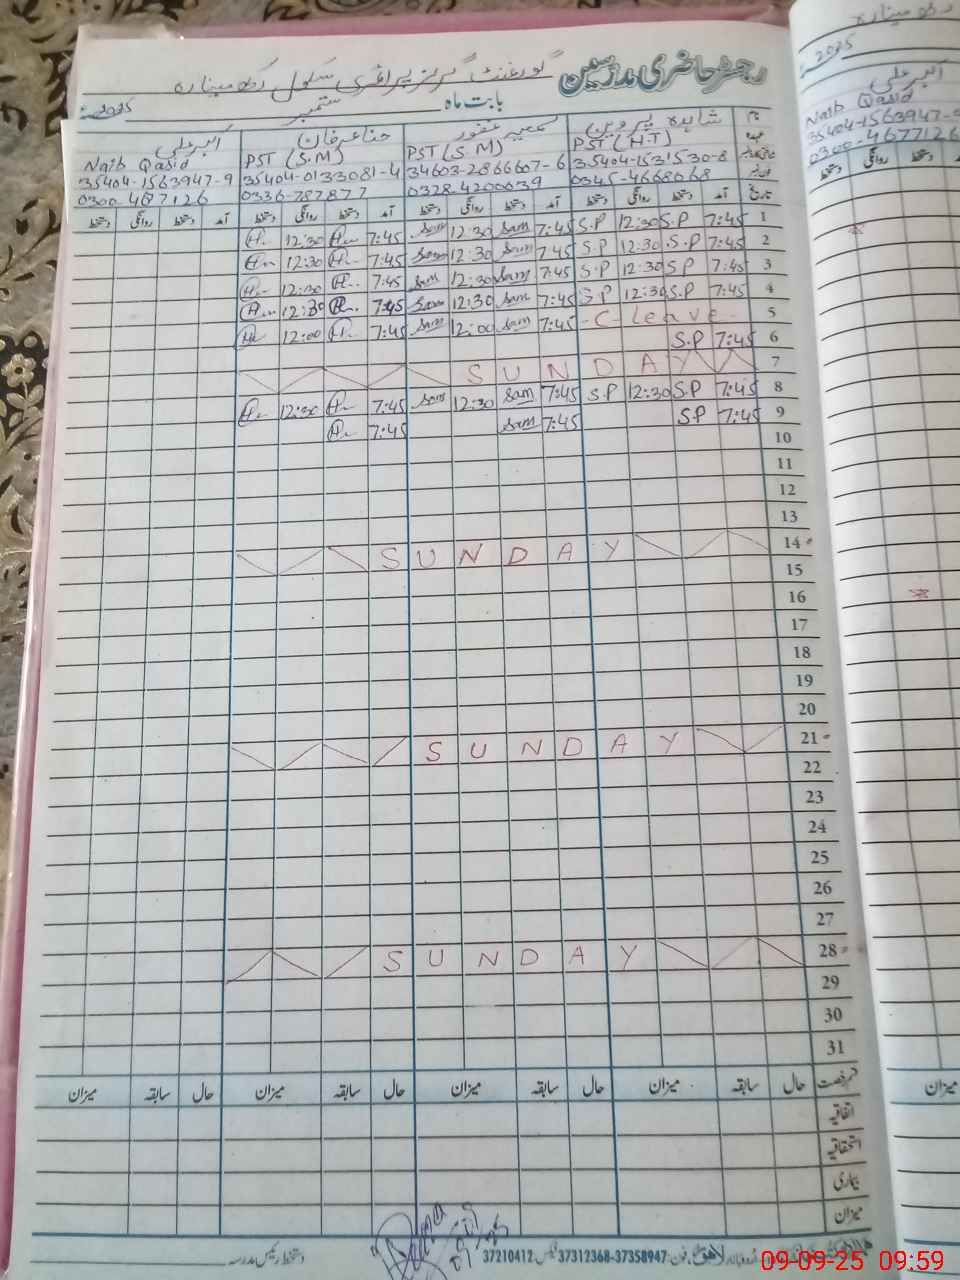 رجسٹر حاضری مدرسین گورنمنٹ گرلز پرائمری سکول رکھ مینارہ
بابت ماہ ستمبر 2025ء
نام شاہدہ پروین سمعیہ غفور حنا عرفان اکبر علی
عہدہ PST (H.T) PST (S.M) PST (S.M) Naib Qasid
35404-1531530-8 34603-2866607-6 35404-0133081-4 35404-1563947-9
0345-4668068 0328-4200039 0336-787877
تاریخ آمد دستخط روانگی دستخط آمد دستخط روانگی دستخط آمد دستخط روانگی دستخط آمد دستخط روانگی دستخط
1 7:45 S.P 12:30 S.P 7:45 Sam 12:30 Sam 7:45 12:30
2 7:45 S.P 12:30 S.P 7:45 Sam 12:30 Sam 7:45 12:30
3 7:45 S.P 12:30 S.P 7:45 Sam 12:30 Sam 7:45 12:30
4 7:45 S.P 12:30 S.P 7:45 Sam 12:30 Sam 7:45 12:30
5 - C - leave - 7:45 Sam 12:00 Sam 7:45 12:00
6 7:45 S.P
7 SUNDAY
8 7:45 S.P 12:30 S.P 7:45 Sam 12:30 Sam 7:45 12:30
9 7:45 S.P 7:45 Sam 7:45
10
11
12
13
14 SUNDAY
15
16
17
18
19
20
21 SUNDAY
22
23
24
25
26
27
28 SUNDAY
29
30
31
قسم رخصت حال سابقہ میزان حال سابقہ میزان حال سابقہ میزان
اتفاقیہ
استحقاقیہ
بیماری
میزان
لاہور فون: 37358947-37312368 فیکس: 37210412
دستخط رئیس مدرسہ
09-09-25 09:59
رکھ مینارہ
2025
اکبر علی
Naib Qasid
35404-1563947-9
0300-4677126
دستخط روانگی دستخط
میزان